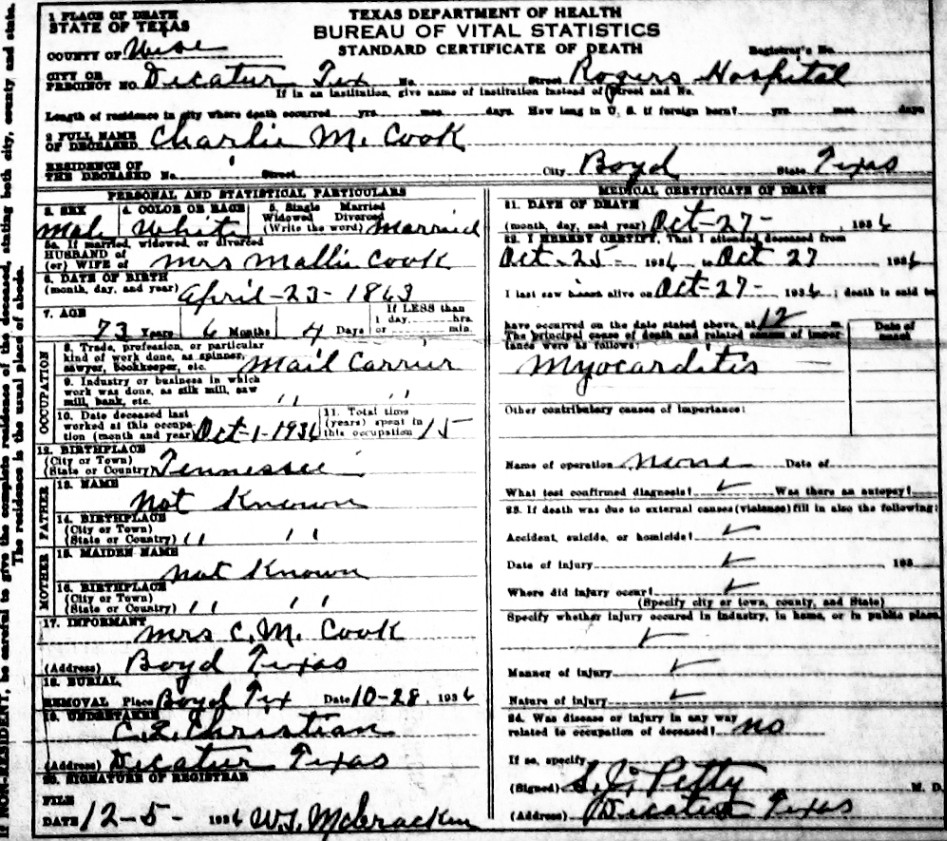 If NON-RESIDENT, be careful to give the complete residence of the deceased, stating both city, county and state.
The residence is the usual place of abode.
TEXAS DEPARTMENT OF HEALTH
BUREAU OF VITAL STATISTICS
STANDARD CERTIFICATE OF DEATH
1 PLACE OF DEATH
STATE OF TEXAS
COUNTY OF Wise Registrar's No.
CITY OR PRECINCT NO. Decatur Tex No. Street Rogers Hospital
If in an institution, give name of institution instead of street and No.
Length of residence in city where death occurred yrs. mos. days. How long in U. S. if foreign born? yrs. mos. days
2 FULL NAME OF DECEASED Charlie M. Cook
RESIDENCE OF THE DECEASED No. Street City Boyd State Texas
PERSONAL AND STATISTICAL PARTICULARS
3. SEX Male 4. COLOR OR RACE White 5. Single Married Widowed Divorced (Write the word) Married
5a. If married, widowed, or divorced
HUSBAND of (or) WIFE of Mrs Mallie Cook
6. DATE OF BIRTH
(month, day, and year) April-23-1863
7. AGE 73 Years 6 Months 4 Days If LESS than 1 day, hrs. or min.
OCCUPATION
8. Trade, profession, or particular kind of work done, as spinner, sawyer, bookkeeper, etc. Mail Carrier
9. Industry or business in which work was done, as silk mill, saw mill, bank, etc. " "
10. Date deceased last worked at this occupation (month and year) Oct-1-1936 11. Total time (years) spent in this occupation 15
12. BIRTHPLACE
(City or Town)
(State or Country) Tennessee
FATHER
13. NAME Not Known
14. BIRTHPLACE
(City or Town)
(State or Country) " "
MOTHER
15. MAIDEN NAME Not Known
16. BIRTHPLACE
(City or Town)
(State or Country) " "
17. INFORMANT Mrs C. M. Cook
(Address) Boyd Texas
18. BURIAL,
REMOVAL Place Boyd Tex Date 10-28, 1936
19. UNDERTAKER C. E. Christian
(Address) Decatur Texas
20. SIGNATURE OF REGISTRAR
FILE DATE 12-5- 1936 W.T. McCracken
MEDICAL CERTIFICATE OF DEATH
21. DATE OF DEATH
(month, day, and year) Oct-27-, 1936
22. I HEREBY CERTIFY, That I attended deceased from
Oct-25- 1936 to Oct 27 1936
I last saw alive on Oct-27- 1936; death is said to
have occurred on the date stated above, at 12 m.
The principal cause of death and related causes of importance were as follows: Date of onset
Myocarditis
Other contributory causes of importance:
Name of operation None Date of
What test confirmed diagnosis? ✓ Was there an autopsy?
23. If death was due to external causes (violence) fill in also the following:
Accident, suicide, or homicide? ✓
Date of injury ✓, 193
Where did injury occur? ✓
(Specify city or town, county, and State)
Specify whether injury occured in industry, in home, or in public place.
✓
Manner of injury ✓
Nature of injury ✓
24. Was disease or injury in any way related to occupation of deceased? no
If so, specify
(Signed) S. J. Petty M. D.
(Address) Decatur Texas